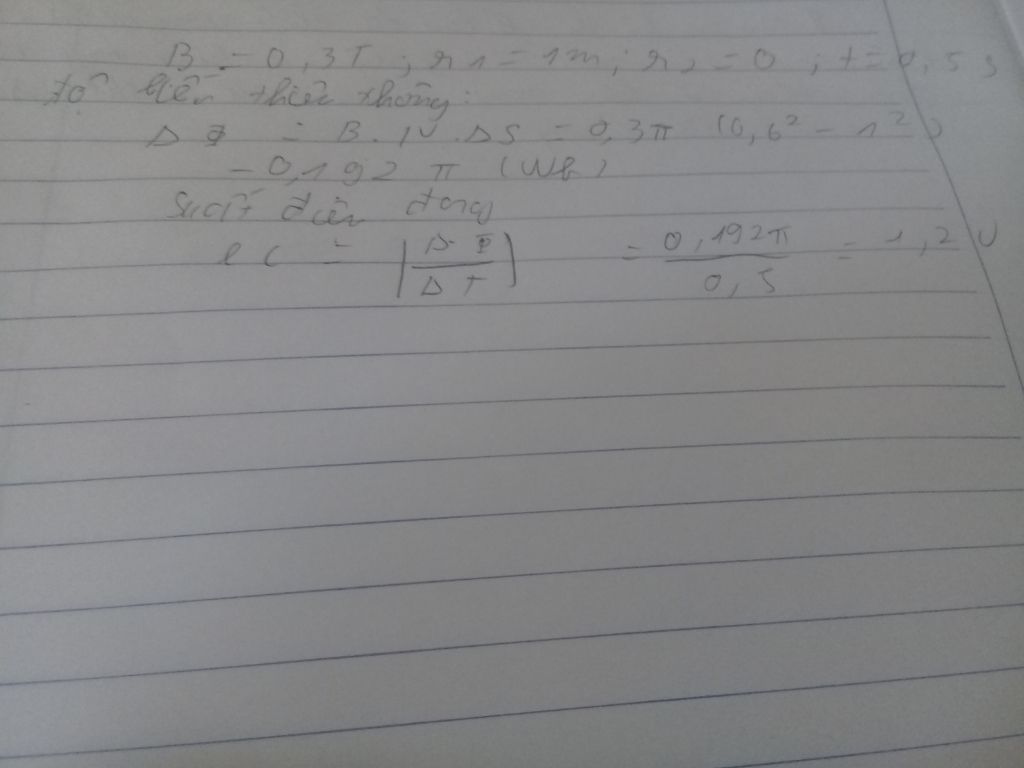 B = 0,3T ; r1 = 1m ; r2 = 0 ; t = 0,5 s
độ biến thiên thông:
ΔΦ = B.N.ΔS = 0,3π (0,6² - 1²)
- 0,192 π (Wb)
Suất điện động
eC = |ΔΦ/ΔT| = 0,192π/0,5 = 1,2 V